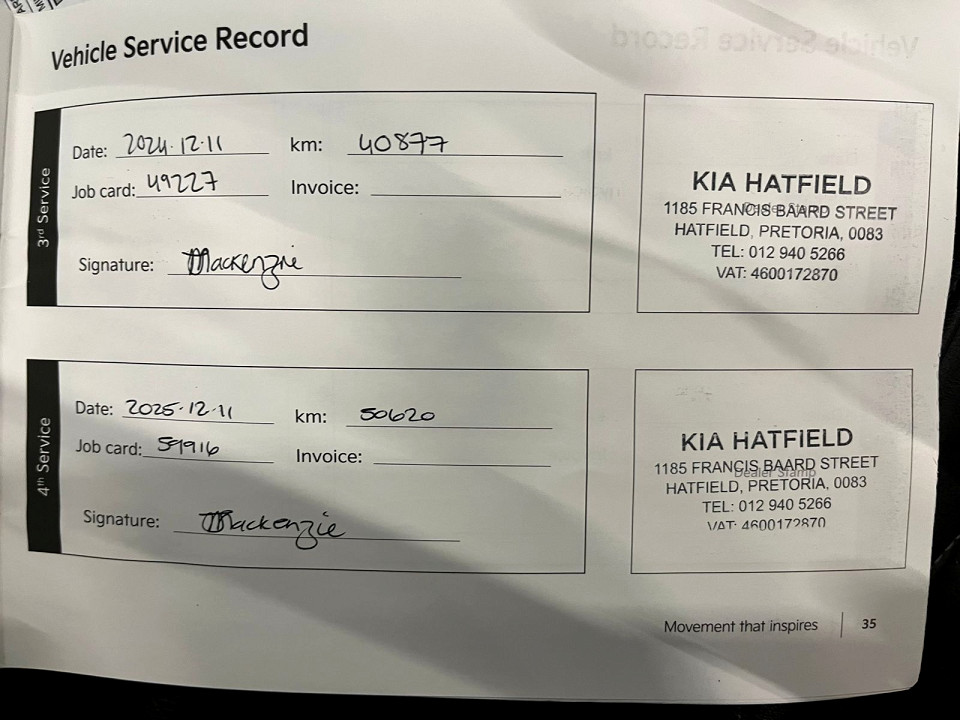 Vehicle Service Record
3rd Service
Date: 2024.12.11 km: 40877
Job card: 49227 Invoice:
Signature: Mackenzie
KIA HATFIELD
Dealer Stamp
1185 FRANCIS BAARD STREET
HATFIELD, PRETORIA, 0083
TEL: 012 940 5266
VAT: 4600172870
4th Service
Date: 2025.12.11 km: 50620
Job card: 59916 Invoice:
Signature: Mackenzie
KIA HATFIELD
1185 FRANCIS BAARD STREET
Dealer Stamp
HATFIELD, PRETORIA, 0083
TEL: 012 940 5266
VAT: 4600172870
Movement that inspires 35